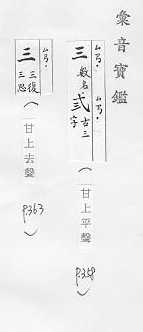 彙音寶鑑
ㄙㄢˊ
三 數名 弎 古三字
（甘上平聲 P.358）
三 三復 三思
（甘上去聲 P.363）